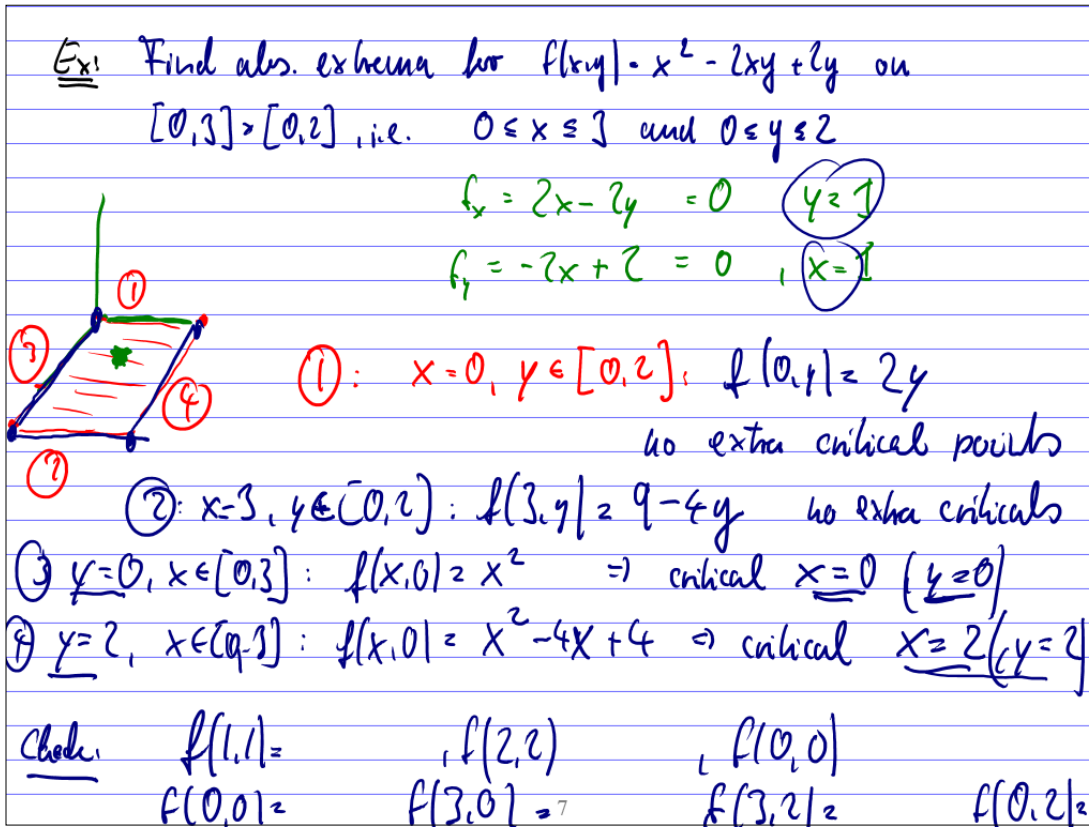 Ex: Find abs. extrema for f(x,y) = x² - 2xy + 2y on
[0,3] × [0,2], i.e. 0 ≤ x ≤ 3 and 0 ≤ y ≤ 2
f_x = 2x - 2y = 0 y = 1
f_y = -2x + 2 = 0 , x = 1
①
③
④
②
①: x = 0, y ∈ [0,2]: f(0,y) = 2y
no extra critical points
②: x = 3, y ∈ [0,2]: f(3,y) = 9 - 4y no extra criticals
③ y = 0, x ∈ [0,3]: f(x,0) = x² ⇒ critical x = 0 (y = 0)
④ y = 2, x ∈ [0,3]: f(x,0) = x² - 4x + 4 ⇒ critical x = 2 (y = 2)
Check: f(1,1) = , f(2,2) , f(0,0)
f(0,0) = f(3,0) = 7 f(3,2) = f(0,2) =